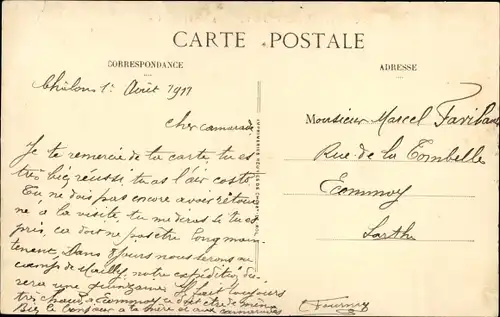 CARTE POSTALE
CORRESPONDANCE
ADRESSE
Châlons 1er Août 1911
Cher camarade
Je te remercie de ta carte, tu es
très bien réussi, tu as l'air costo.
Tu ne dois pas encore avoir
né à la visite, tu me diras si tu es
pris, ça doit ne pas être long main-
tenant. Dans 8 jours nous serons au
camp de Mailly, notre
sera une quinzaine. Il fait toujours
très chaud, à Ecommoy ce doit être de même
Bien le bonjour à ta mère et aux camarades
Monsieur Marcel
Rue de la Tombelle
Ecommoy
Sarthe
Fournier